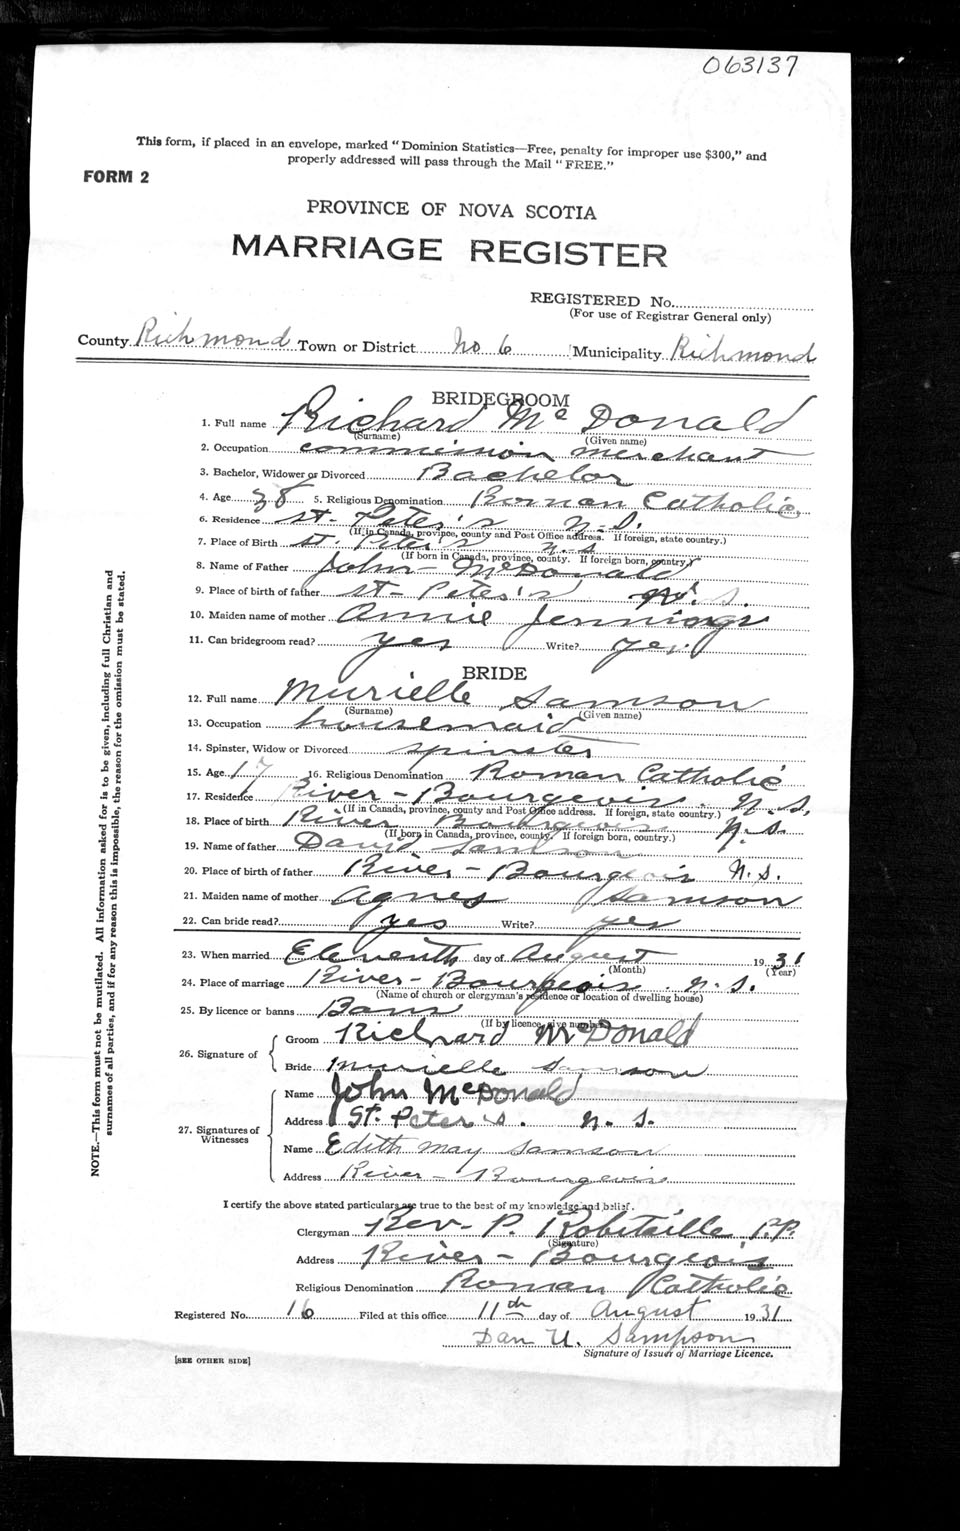 063137
This form, if placed in an envelope, marked "Dominion Statistics—Free, penalty for improper use $300," and
properly addressed will pass through the Mail "FREE."
FORM 2
PROVINCE OF NOVA SCOTIA
MARRIAGE REGISTER
REGISTERED No.
(For use of Registrar General only)
County Richmond Town or District No 6 Municipality Richmond
BRIDEGROOM
1. Full name Richard McDonald
(Surname) (Given name)
2. Occupation commission merchant
3. Bachelor, Widower or Divorced Bachelor
4. Age 38 5. Religious Denomination Roman Catholic
6. Residence St. Peter's N.S.
(If in Canada, province, county and Post Office address. If foreign, state country.)
7. Place of Birth St. Peter's N.S.
(If born in Canada, province, county. If foreign born, country)
8. Name of Father John McDonald
9. Place of birth of father St- Peter's N.S.
10. Maiden name of mother Annie Jennings
11. Can bridegroom read? yes Write? yes.
BRIDE
12. Full name Murielle Samson
(Surname) (Given name)
13. Occupation housemaid
14. Spinster, Widow or Divorced spinster
15. Age 17 16. Religious Denomination Roman Catholic
17. Residence River-Bourgeois. N.S.
(If in Canada, province, county and Post Office address. If foreign, state country.)
18. Place of birth River Bourgeois N.S.
(If born in Canada, province, county. If foreign born, country.)
19. Name of father David Samson
20. Place of birth of father River-Bourgeois N.S.
21. Maiden name of mother Agnes Samson
22. Can bride read? yes Write? yes
23. When married Eleventh day of August 1931
(Month) (Year)
24. Place of marriage River-Bourgeois. N.S.
(Name of church or clergyman's residence or location of dwelling house)
25. By licence or banns Bans
(If by licence, give number)
26. Signature of
Groom Richard McDonald
Bride Murielle Samson
27. Signatures of Witnesses
Name John McDonald
Address St. Peter's. N.S.
Name Edith May Samson
Address River-Bourgeois
I certify the above stated particulars are true to the best of my knowledge and belief.
Clergyman Rev- P. Robitaille, P.P.
(Signature)
Address River-Bourgeois
Religious Denomination Roman Catholic
Registered No. 16 Filed at this office 11th day of August 1931
Dan U. Sampson
Signature of Issuer of Marriage Licence.
[SEE OTHER SIDE]
NOTE.—This form must not be mutilated. All information asked for is to be given, including full Christian and
surnames of all parties, and if for any reason this is impossible, the reason for the omission must be stated.